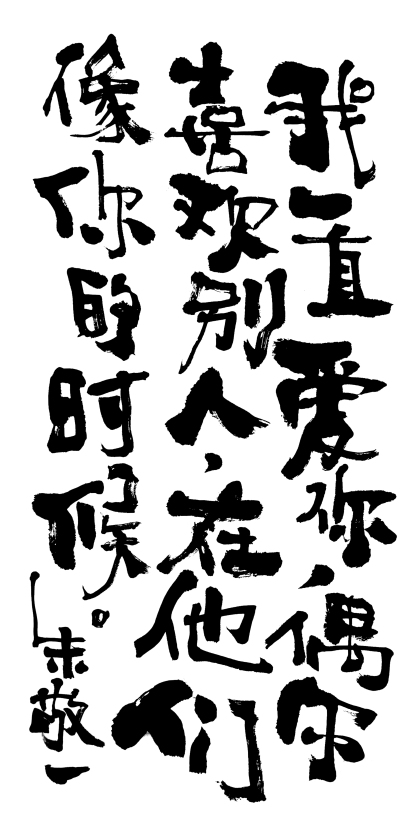 我一直爱你,偶尔
喜欢别人,在他们
像你的时候。
朱敬一